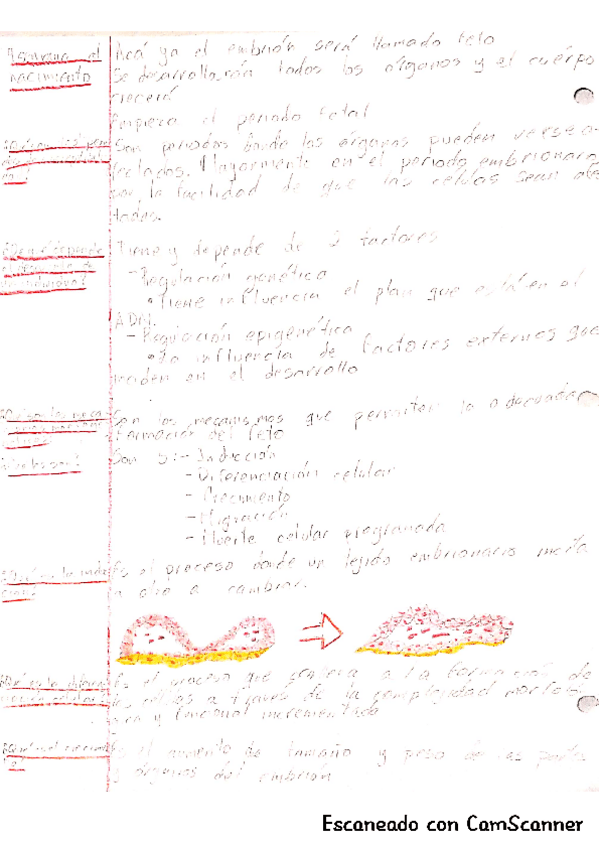 9 semana al nacimiento
Acá ya el embrión será llamado feto
Se desarrollarán todos los órganos y el cuerpo
crecerá
Empieza el periodo fetal
Son periodos donde los órganos pueden verse a-
fectados. Mayormente en el periodo embrionario
por la facilidad de que las células sean afe
tadas.
Tiene y depende de 2 factores
- Regulación genética
• Tiene influencia el plan que está en el
ADN.
- Regulación epigenética
• La influencia de factores externos que
inciden en el desarrollo
Son los mecanismos que permiten la adecuada
formación del feto
Son 5: - Inducción
- Diferenciación celular
- Crecimiento
- Migración
- Muerte celular programada
Es el proceso donde un tejido embrionario incita
a otro a cambiar.
Es el proceso que conlleva a la formación de
células a través de la complejidad morfoló
y funcional incrementada
el aumento de tamaño y peso de las partes
y órganos del embrión
Escaneado con CamScanner